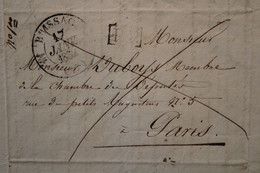 17
JANV
Monsieur
Monsieur Dubois Membre
de la Chambre des Députés
rue des petits Augustins N° 5
à Paris.